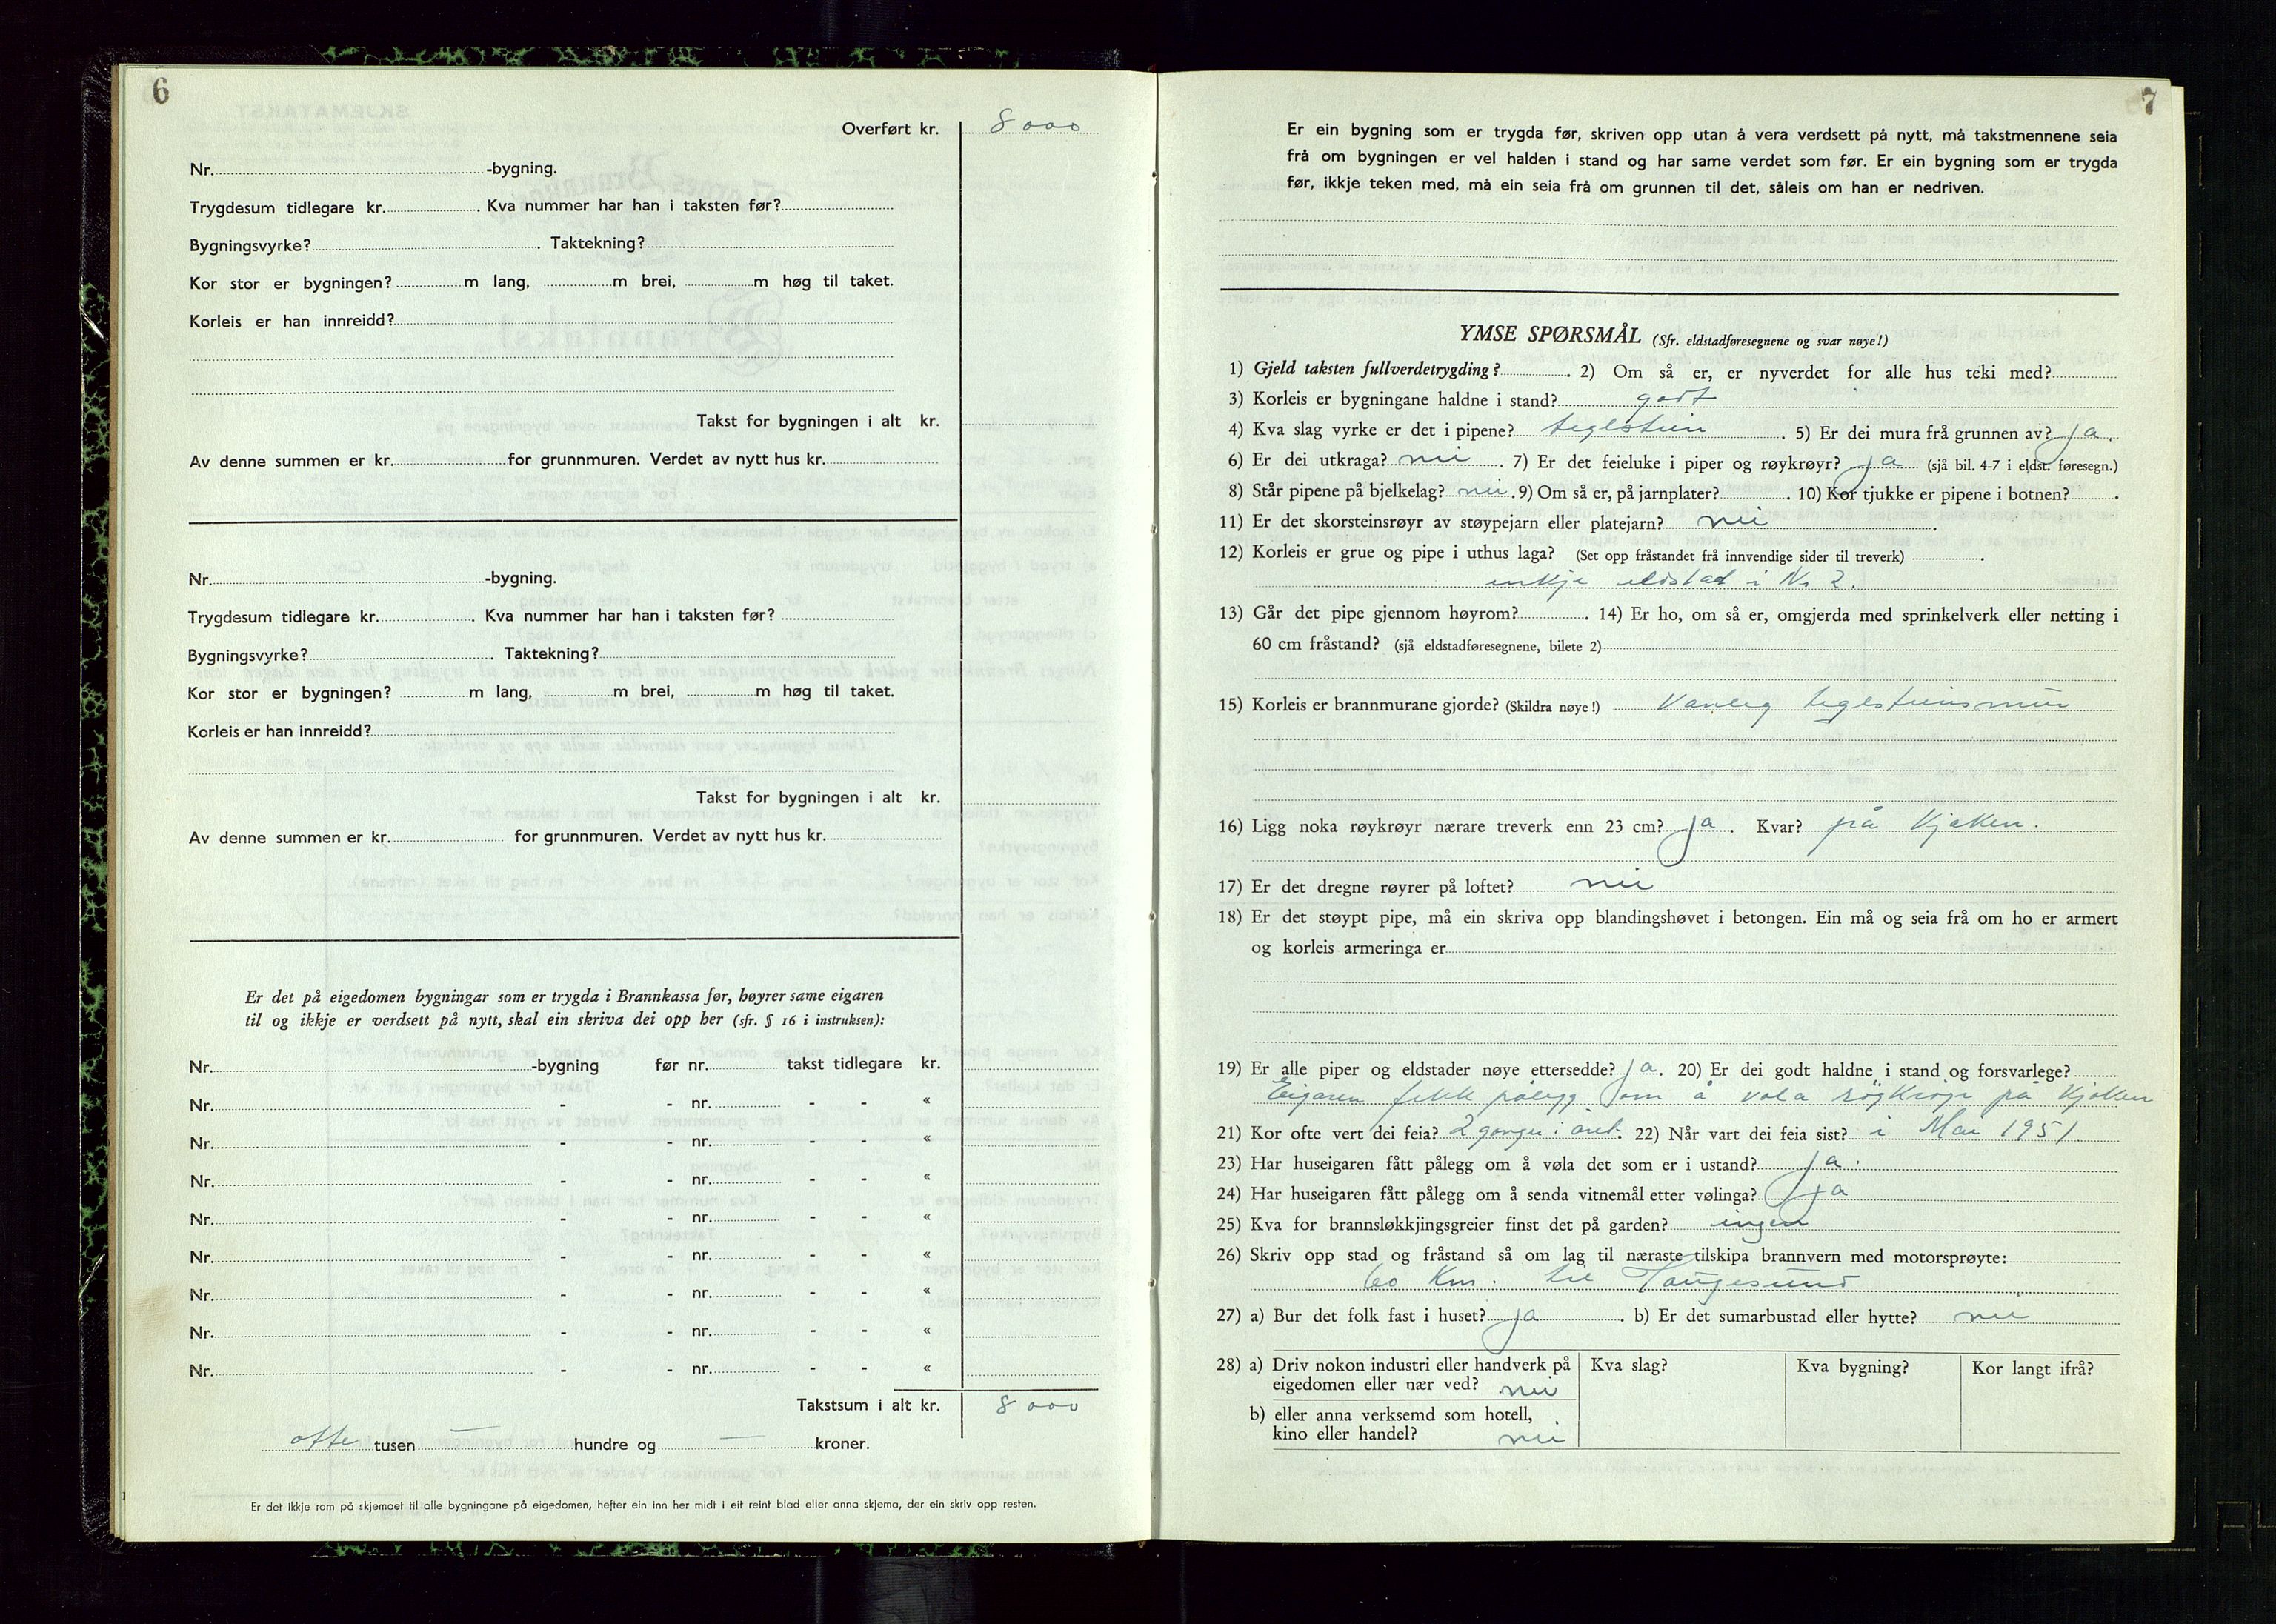 6
Overført kr. 8000
Nr. -bygning.
Trygdesum tidlegare kr. . Kva nummer har han i taksten før?
Bygningsvyrke? . Taktekning?
Kor stor er bygningen? m lang, m brei, m høg til taket.
Korleis er han innreidd?
Takst for bygningen i alt kr.
Av denne summen er kr. for grunnmuren. Verdet av nytt hus kr.
Nr. -bygning.
Trygdesum tidlegare kr. . Kva nummer har han i taksten før?
Bygningsvyrke? . Taktekning?
Kor stor er bygningen? m lang, m brei, m høg til taket.
Korleis er han innreidd?
Takst for bygningen i alt kr.
Av denne summen er kr. for grunnmuren. Verdet av nytt hus kr.
Er det på eigedomen bygningar som er trygda i Brannkassa før, høyrer same eigaren
til og ikkje er verdsett på nytt, skal ein skriva dei opp her (sfr. § 16 i instruksen):
Nr. -bygning før nr. takst tidlegare kr.
Nr. - - nr. - - «
Nr. - - nr. - - «
Nr. - - nr. - - «
Nr. - - nr. - - «
Nr. - - nr. - - «
Nr. - - nr. - - «
Nr. - - nr. - - «
Nr. - - nr. - - «
Takstsum i alt kr. 8000
otte tusen — hundre og — kroner.
Er det ikkje rom på skjemaet til alle bygningane på eigedomen, hefter ein inn her midt i eit reint blad eller anna skjema, der ein skriv opp resten.
7
Er ein bygning som er trygda før, skriven opp utan å vera verdsett på nytt, må takstmennene seia
frå om bygningen er vel halden i stand og har same verdet som før. Er ein bygning som er trygda
før, ikkje teken med, må ein seia frå om grunnen til det, såleis om han er nedriven.
YMSE SPØRSMÅL (Sfr. eldstadføresegnene og svar nøye!)
1) Gjeld taksten fullverdetrygding? . 2) Om så er, er nyverdet for alle hus teki med?
3) Korleis er bygningane haldne i stand? godt
4) Kva slag vyrke er det i pipene? teglstein . 5) Er dei mura frå grunnen av? ja.
6) Er dei utkraga? nei . 7) Er det feieluke i piper og røykrøyr? ja (sjå bil. 4-7 i eldst. føresegn.)
8) Står pipene på bjelkelag? nei. 9) Om så er, på jarnplater? . 10) Kor tjukke er pipene i botnen? .
11) Er det skorsteinsrøyr av støypejarn eller platejarn? nei .
12) Korleis er grue og pipe i uthus laga? (Set opp fråstandet frå innvendige sider til treverk) .
inkje eldstad i Nr 2.
13) Går det pipe gjennom høyrom? . 14) Er ho, om så er, omgjerda med sprinkelverk eller netting i
60 cm fråstand? (sjå eldstadføresegnene, bilete 2)
15) Korleis er brannmurane gjorde? (Skildra nøye!) Vanleg teglsteinsmur
16) Ligg noka røykrøyr nærare treverk enn 23 cm? ja . Kvar? på kjøken.
17) Er det dregne røyrer på loftet? nei
18) Er det støypt pipe, må ein skriva opp blandingshøvet i betongen. Ein må og seia frå om ho er armert
og korleis armeringa er
19) Er alle piper og eldstader nøye ettersedde? ja. 20) Er dei godt haldne i stand og forsvarlege?
Eigaren fekk pålegg om å vøla røgkrøjr på kjøken
21) Kor ofte vert dei feia? 2 gonger i året. 22) Når vart dei feia sist? i Mai 1951
23) Har huseigaren fått pålegg om å vøla det som er i ustand? ja.
24) Har huseigaren fått pålegg om å senda vitnemål etter vølinga? ja
25) Kva for brannsløkkjingsgreier finst det på garden? ingen
26) Skriv opp stad og fråstand så om lag til næraste tilskipa brannvern med motorsprøyte:
60 Km. til Haugesund
27) a) Bur det folk fast i huset? ja . b) Er det sumarbustad eller hytte? nei
28) a) Driv nokon industri eller handverk på Kva slag? Kva bygning? Kor langt ifrå?
eigedomen eller nær ved? nei
b) eller anna verksemd som hotell,
kino eller handel? nei